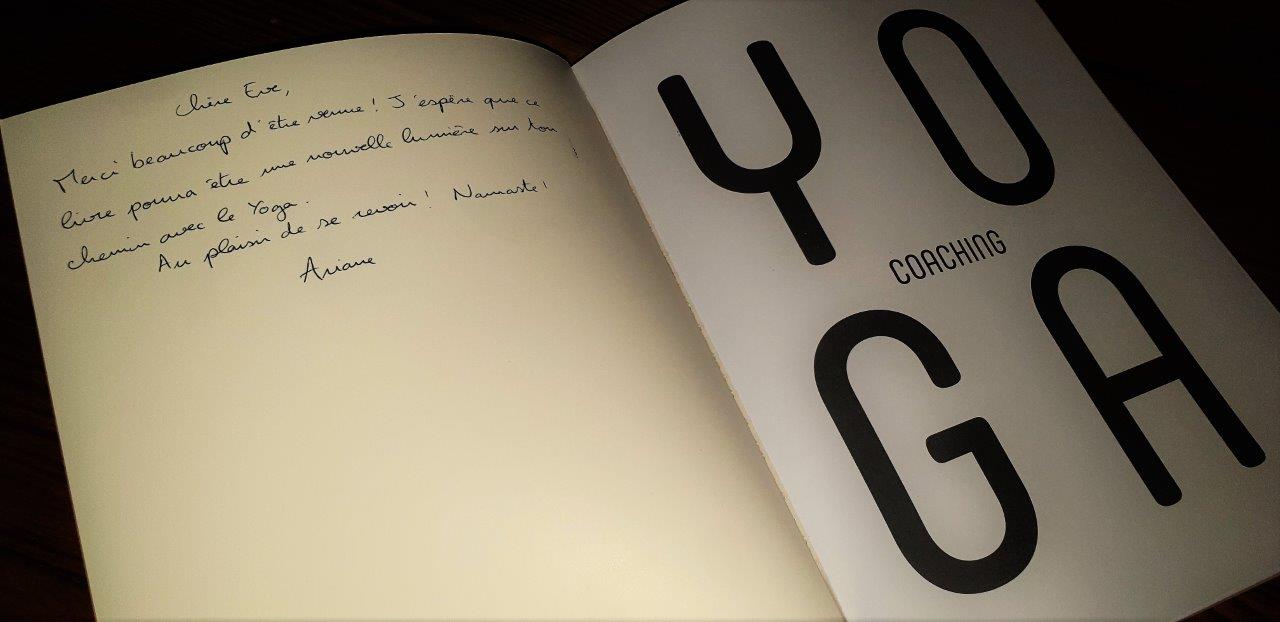 Chère Eve,
Merci beaucoup d'être venue ! J'espère que ce
livre pourra être une nouvelle lumière sur ton
chemin avec le Yoga.
Au plaisir de se revoir ! Namaste !
Ariane
YO
COACHING
GA